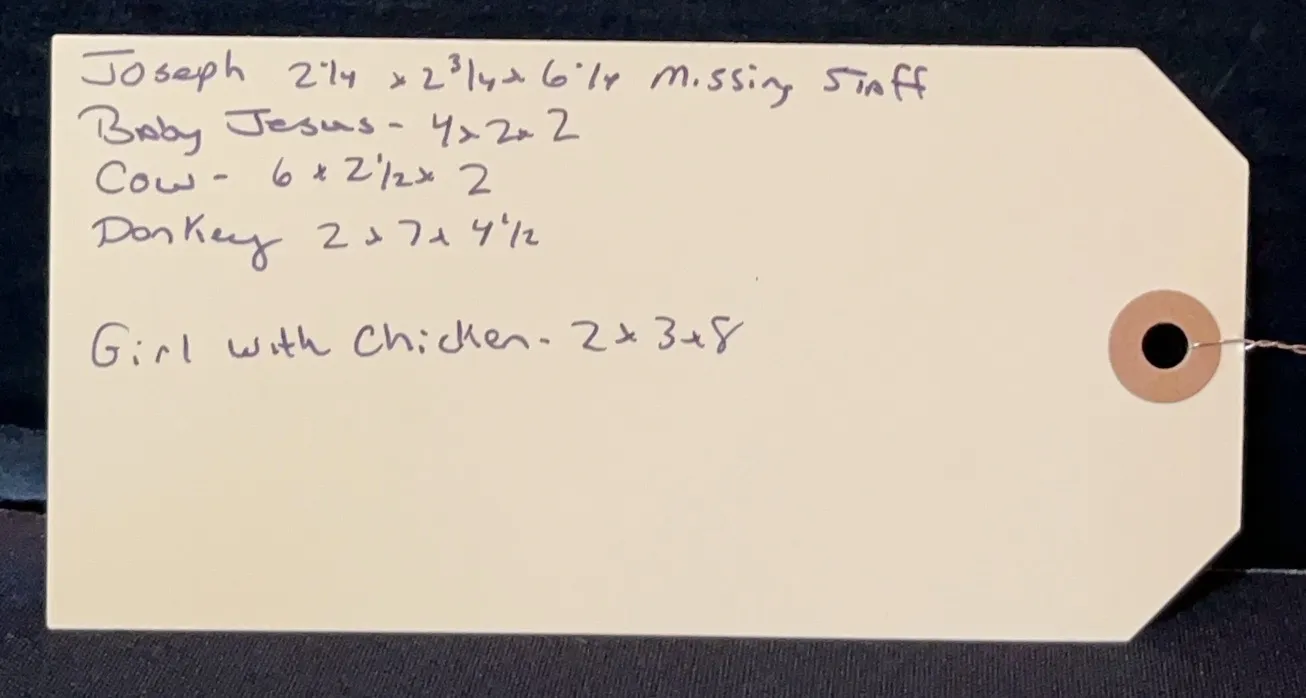 Joseph 2 1/4 x 2 3/4 x 6 1/4 Missing Staff
Baby Jesus - 4 x 2 x 2
Cow - 6 x 2 1/2 x 2
Donkey 2 x 7 x 4 1/2
Girl with Chicken - 2 x 3 x 8